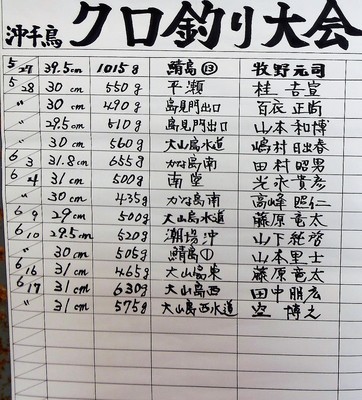 沖手島 クロ釣り大会
5/27 39.5cm 1015g 鯖島⑬ 牧野元司
5/28 30cm 550g 平瀬 桂 吉堂
〃 30cm 490g 島見門出口 百衣 正尚
〃 29.5cm 510g 島見門出口 山本和博
〃 30cm 560g 大山島水道 嶋村日出春
6/3 31.8cm 655g かな島南 田村昭男
6/4 31cm 500g 南堂 光永貴彦
〃 30cm 435g かな島南 高峰照仁
6/9 29cm 500g 大山島水道 藤原竜太
6/10 29.5cm 520g 潮場沖 山下純啓
〃 30cm 505g 鯖島① 山本里士
6/16 31cm 465g 大山島東 藤原竜太
6/17 31cm 630g 大山島西 田中朋宏
〃 31cm 575g 大山島西水道 博之